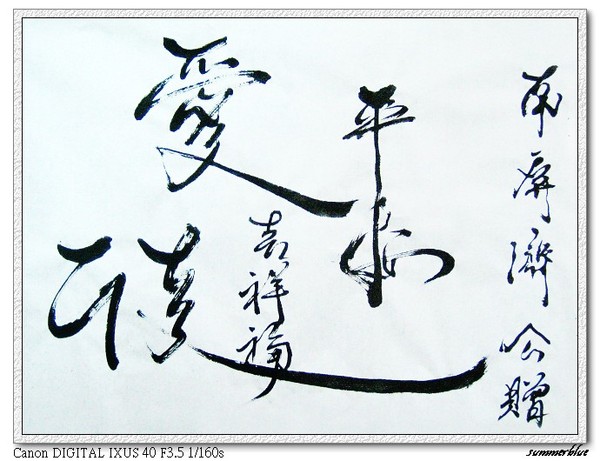 南屏濟公贈
平安
愛
吉祥福
Canon DIGITAL IXUS 40 F3.5 1/160s
summerblue